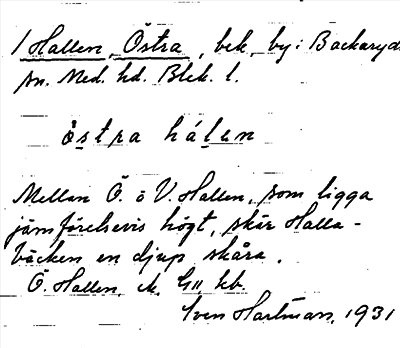 / Hallen, Östra, bek. by i Backaryds
sn. Med. hd. Blek. l.
östra hálen
Mellan Ö. o V. Hallen, som ligga
jämförelsevis högt, skär Halla-
bäcken en djup skåra.
Ö. Hallen, kb.
Sven Hartman, 1931